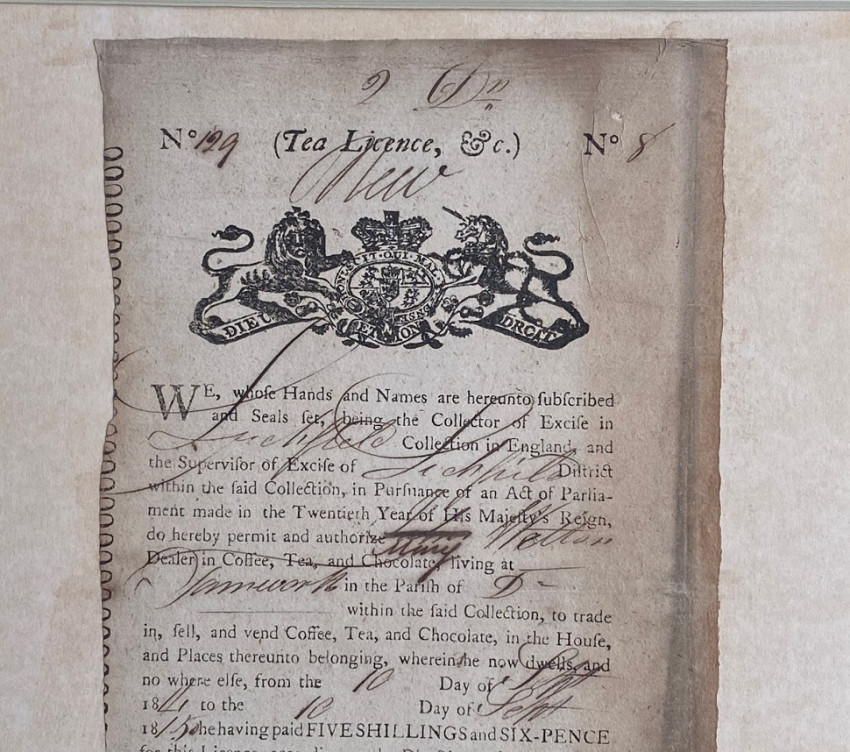 2 Dn
No 129 (Tea Licence, &c.) No 8
New
HONI SOIT QUI MAL Y PENSE
DIEU ET MON DROIT
WE, whoſe Hands and Names are hereunto ſubſcribed
and Seals ſet, being the Collector of Exciſe in
Lichfield Collection in England, and
the Superviſor of Exciſe of Lichfield Diſtrict
within the ſaid Collection, in Purſuance of an Act of Parlia-
ment made in the Twentieth Year of His Majeſty's Reign,
do hereby permit and authorize Mary Welton
Dealer in Coffee, Tea, and Chocolate, living at
Tamworth in the Pariſh of Do
within the ſaid Collection, to trade
in, ſell, and vend Coffee, Tea, and Chocolate, in the Houſe,
and Places thereunto belonging, wherein she now dwells, and
no where elſe, from the 10 Day of Sept
1814 to the 10 Day of Sept
1815 he having paid FIVE SHILLINGS and SIX-PENCE
for this Licence,